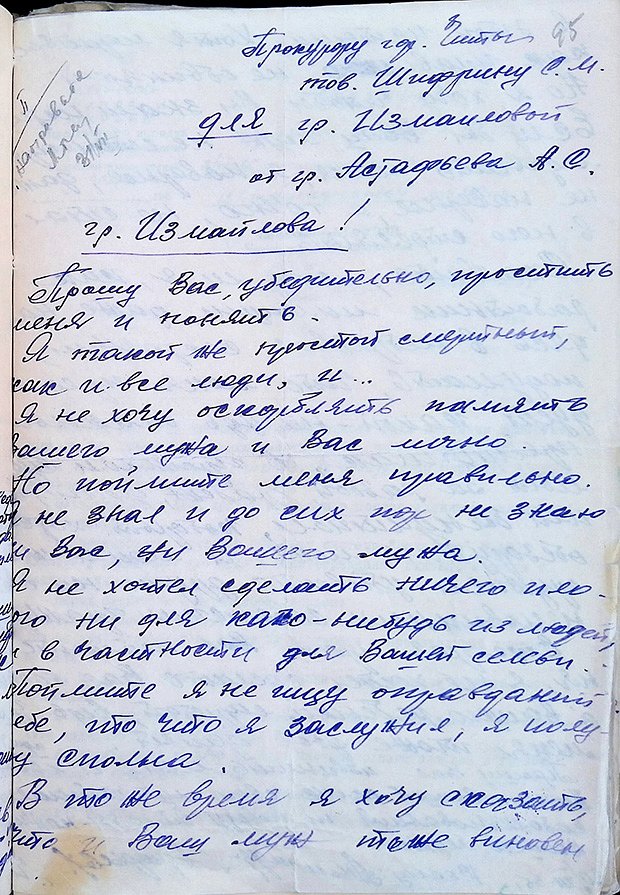 95
Прокурору гор. Читы
тов. Шифрину С. М.
для гр. Измаиловой
от гр. Астафьева А. С.
II
направлена
гр. Измаилова!
Прошу Вас, убедительно, простить
меня и понять.
Я такой же простой смертный,
как и все люди, и...
Я не хочу оскорблять память
вашего мужа и Вас лично.
Но поймите меня правильно.
Я не знал и до сих пор не знаю
ни Вас, ни Вашего мужа.
Я не хотел сделать ничего пло-
ого ни для како-нибудь из людей,
и в частности для Вашей семьи.
Поймите я не ищу оправданий
себе, то что я заслужил, я полу-
чу сполна.
В то же время я хочу сказать,
что и Ваш муж тоже виновен